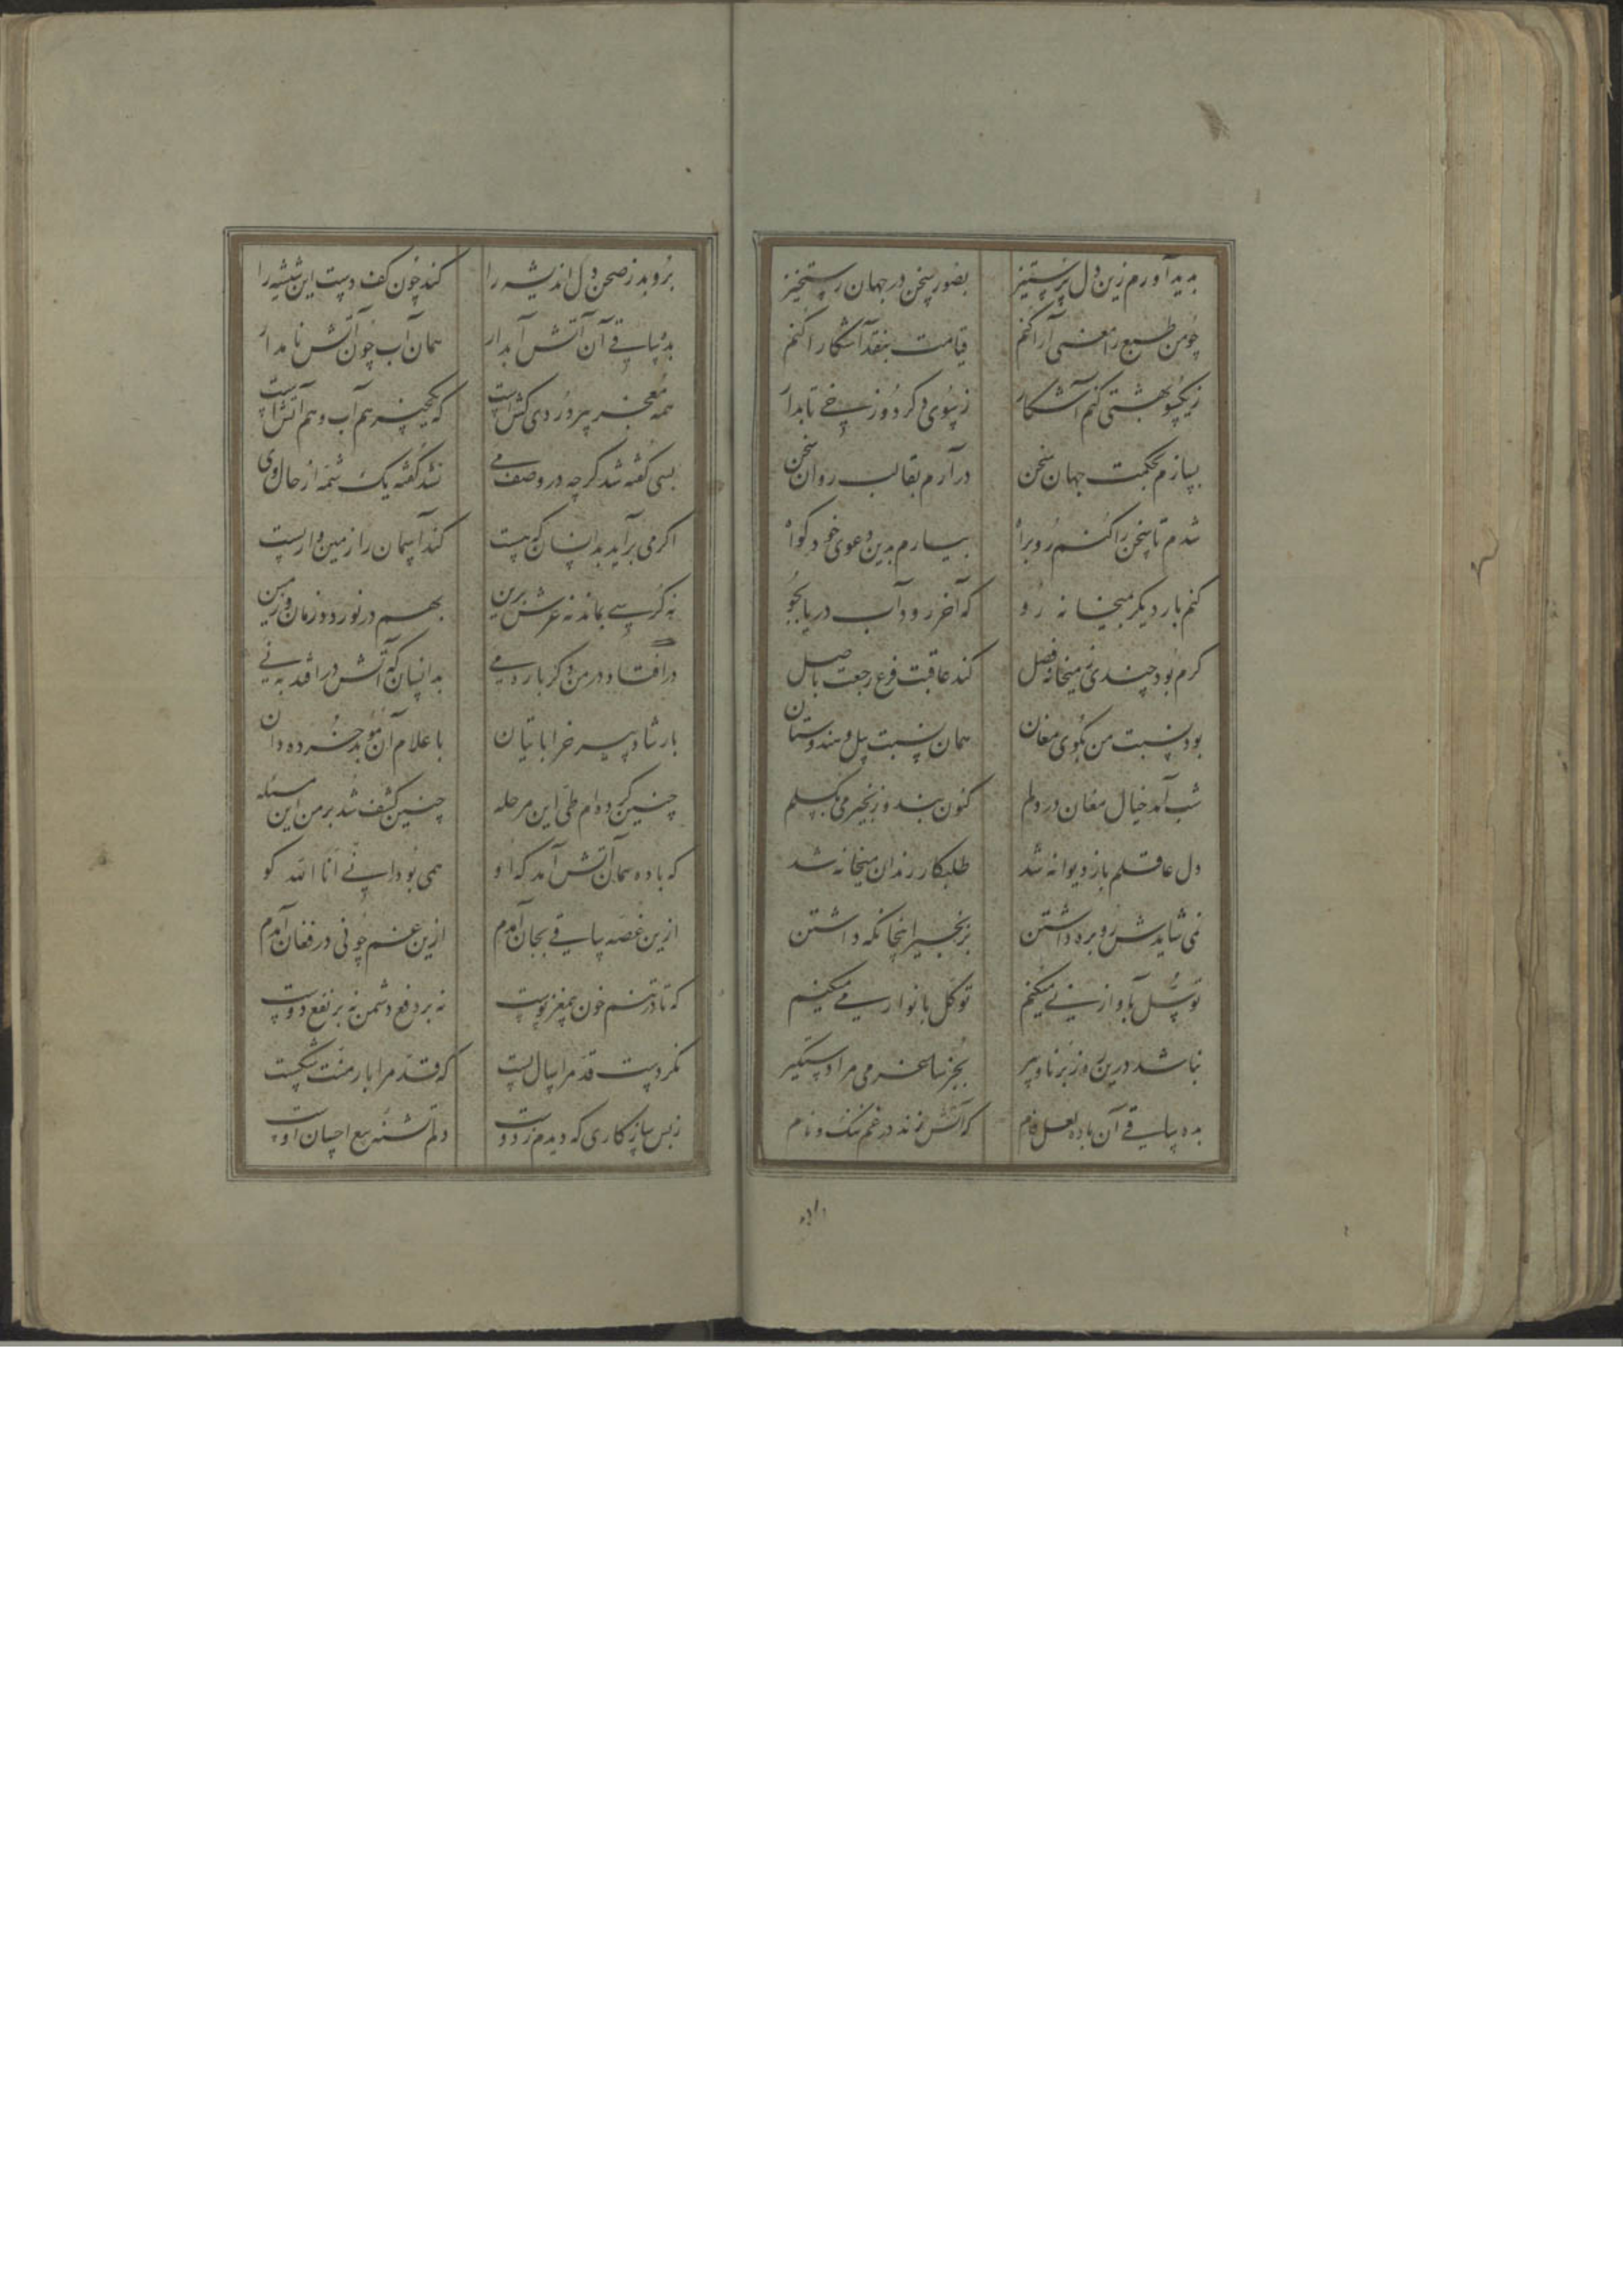 پدید آورم زین دل پر ستیز بصور سخن در جهان رستخیز
چو من طبع را معنی آرا کنم قیامت بنقد آشکارا کنم
ز یکسو بهشتی کنم آشکار ز سوی دگر دوزخی تابدار
بسازم بحکمت جهان سخن درآرم بقالب روان سخن
شدم تا سخن را کنم روبراه بیارم بدین دعوی خود گواه
کنم بار دیگر بمیخانه رو که آخر رود آب دریا بجو
گرم بود چندی ز میخانه فصل کند عاقبت فرع رجعت باصل
بود نسبت من بکوی مغان همان نسبت پیل و هندوستان
شب آمد خیال مغان در دلم کنون بند و زنجیر می بگسلم
دل عاقلم باز دیوانه شد طلبکار رندان میخانه شد
نمی شایدش رو بره داشتن بزنجیر اینجا نگه داشتن
توسل بآواز نی میکنم توکل بانوار می میکنم
نباشد درین روز برنا و پیر بجز ساغر می مرا دستگیر
بده ساقی آن باده لعل فام که آتش زند در غم ننگ و نام
بروبد ز صحن دل اندیشه را کند چون کف دست این شیشه را
بده ساقی آن آتش آبدار همان آب چون آتش نامدار
همه معجز پیر دردی کش است که یکچیز هم آب و هم آتش است
بسی گفته شد گرچه در وصف می نشد گفته یک شمه از حال وی
اگر می برآید بدانسان که هست کند آسمان را زمین وار پست
نه کرسی بماند نه عرش برین بهم در نوردد زمان و زمین
در افتاد در من دگر بار می بدانسان که آتش در افتد به نی
بارشاد پیر خراباتیان باعلام آن موبد خرده دان
چنین کرده ام طی این مرحله چنین کشف شد بر من این مسئله
که باده همان آتش آمد که او همی بود انی انا الله گو
ازین غصه ساقی بجان آمدم ازین غم چو نی در فغان آمدم
که تا در تنم خون و مغز و پوست نه بر دفع دشمن نه بر نفع دوست
نکردست قد مرا سال پست که قد مرا بار منت شکست
ز بس سازکاری که دیدم ز دوست دلم تشنه تیغ احسان اوست